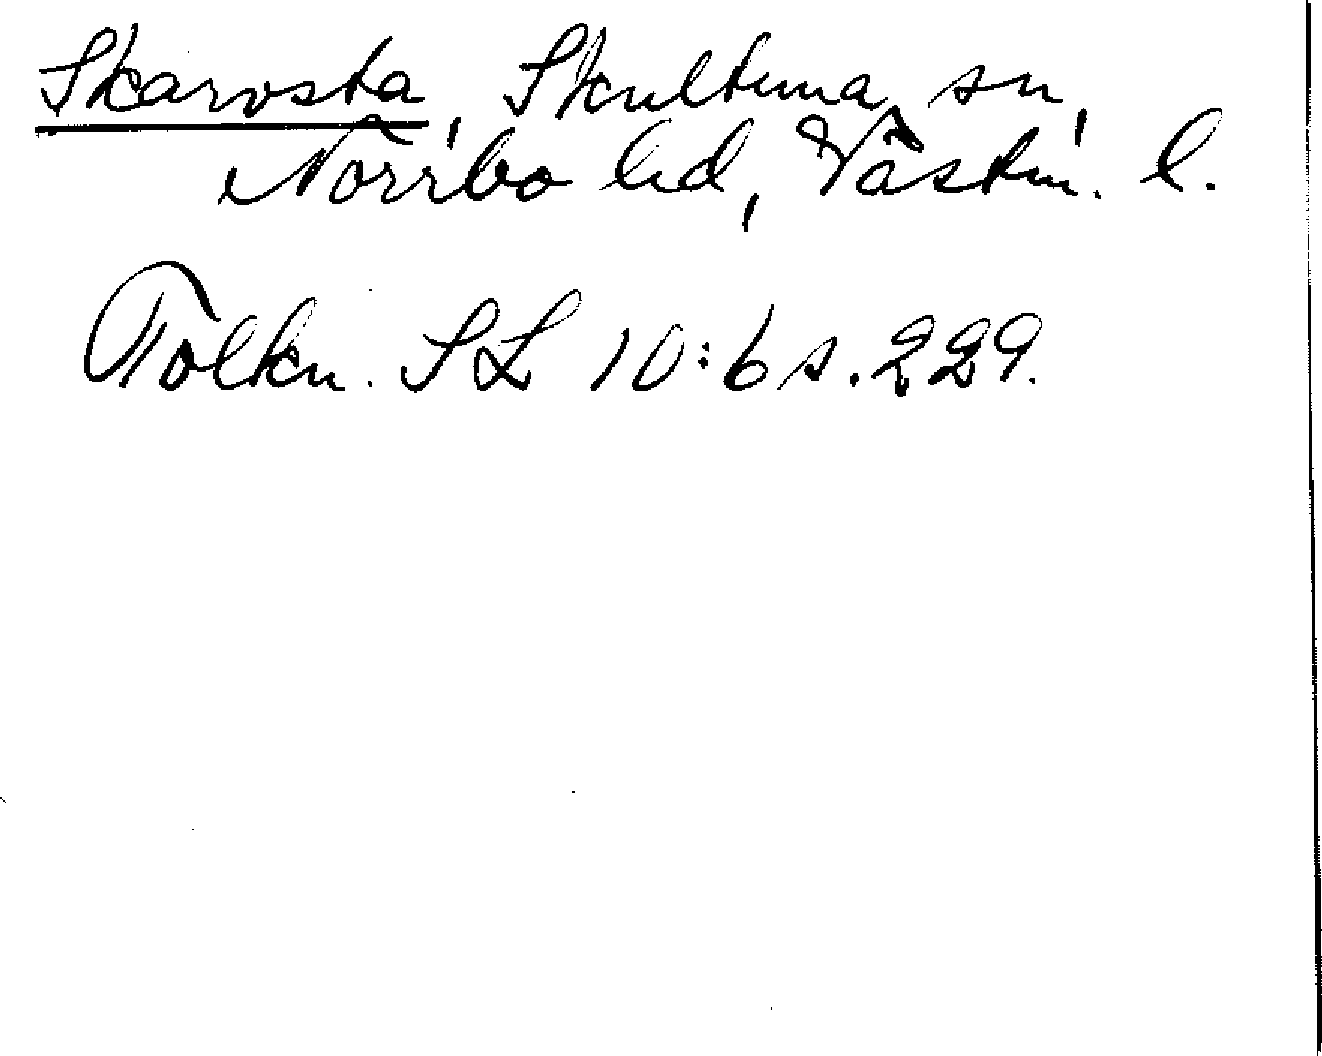 Skarvsta, Skultuna sn,
Norrbo hd, Västm. l.
Tolkn. SL 10:6 s. 229.